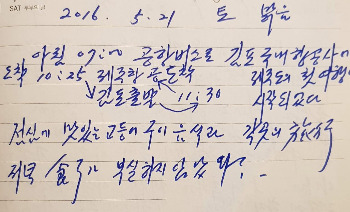 SAT
2016. 5. 21 토 맑음
아침 07:00 공항버스로 김포국내항공사에
도착 10:25 제주항공 도착 제주도의 첫 여행이
김포출발 11:30 시작되고다
점심에 맛있는 고등어 구이 음식과 각옷의 旅行
저녁 食事가 부실하지 않았다?